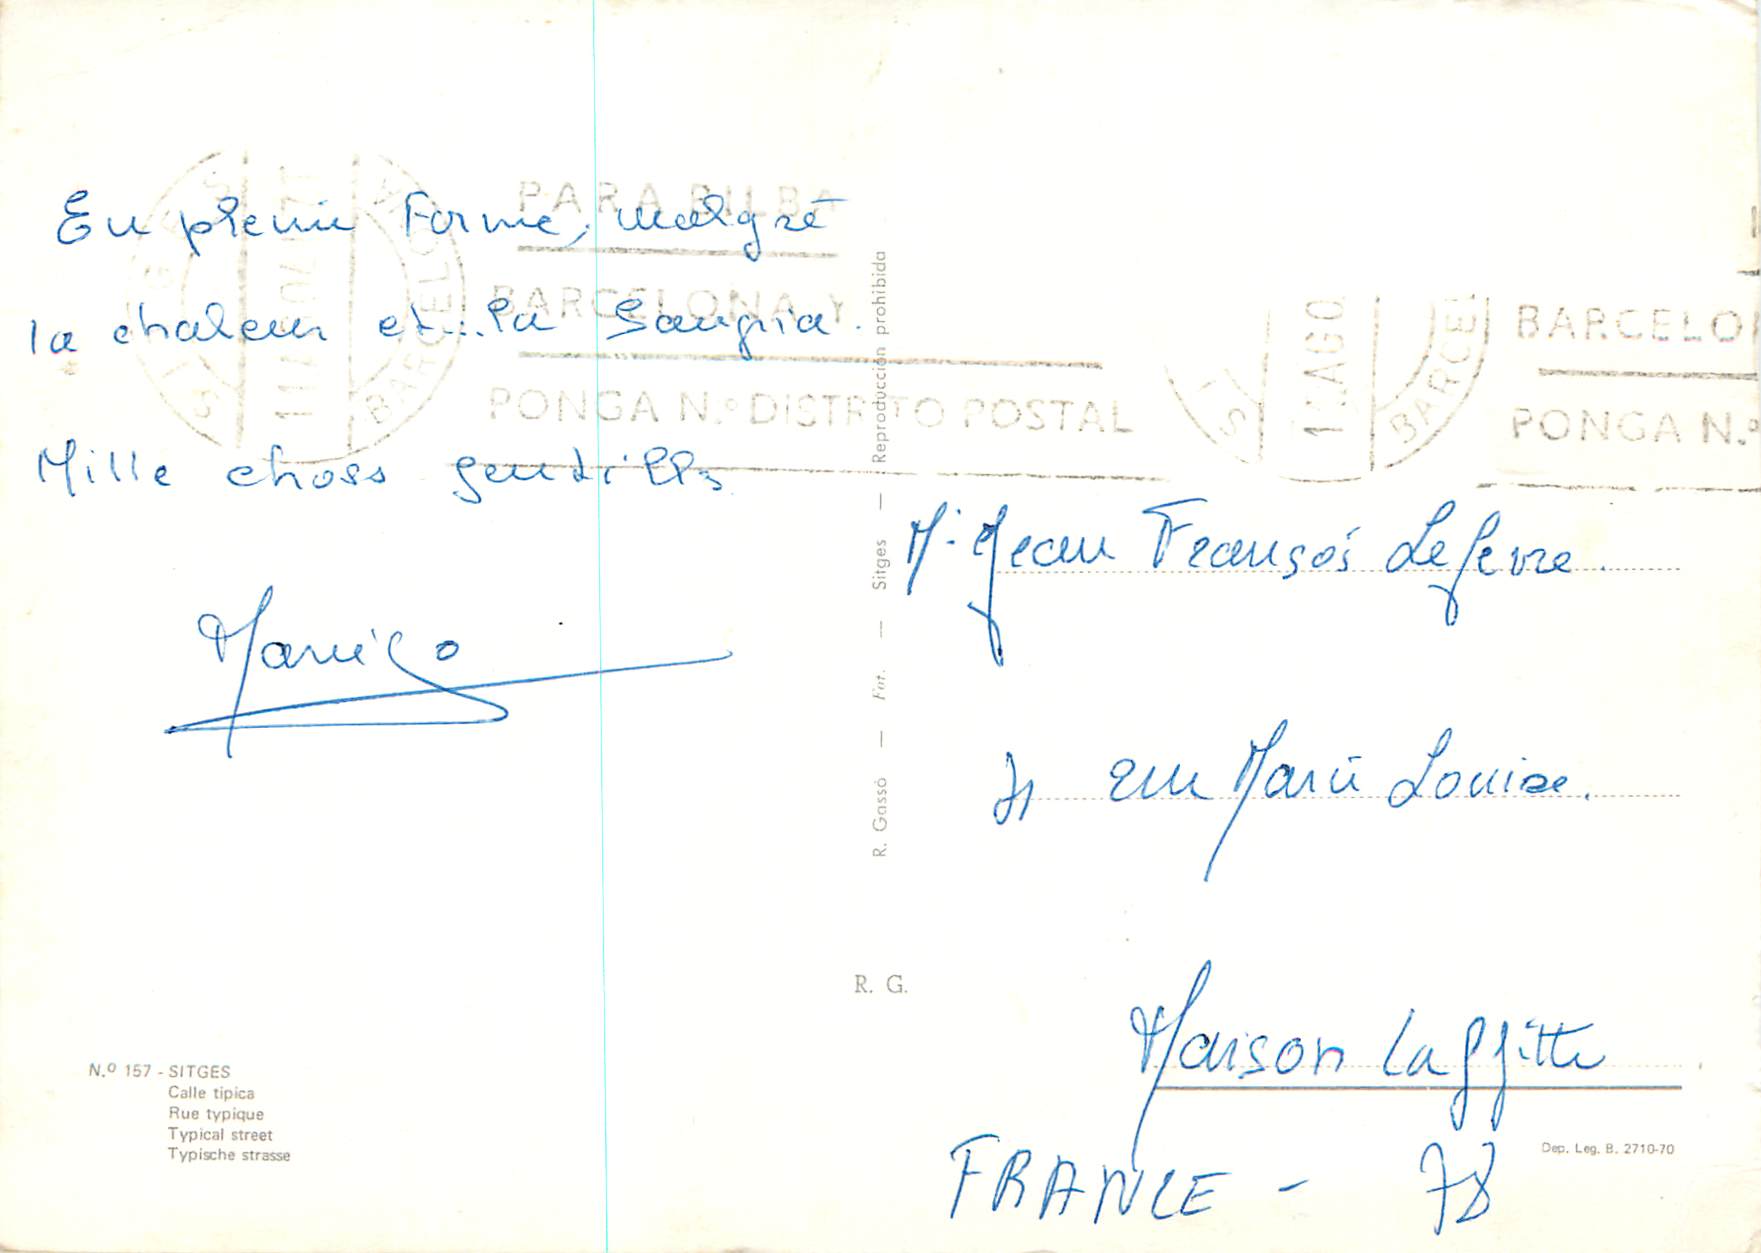 En pleine Forme, malgré
la chaleur et... la Sangria.
Mille choses gentilles
PARA BILBA
BARCELONA Y
PONGA N.º DISTRITO POSTAL
SITGES
BARCELO
11 AGO
BARCEL
BARCELO
PONGA N.º
R. Gassó — Fot. — Sitges — Reproducción prohibida
Mr Jean François Lefevre.
rue Marie Louise.
R. G.
Maison Laffitte
FRANCE - 78
N.º 157 - SITGES
Calle típica
Rue typique
Typical street
Typische strasse
Dep. Leg. B. 2710-70